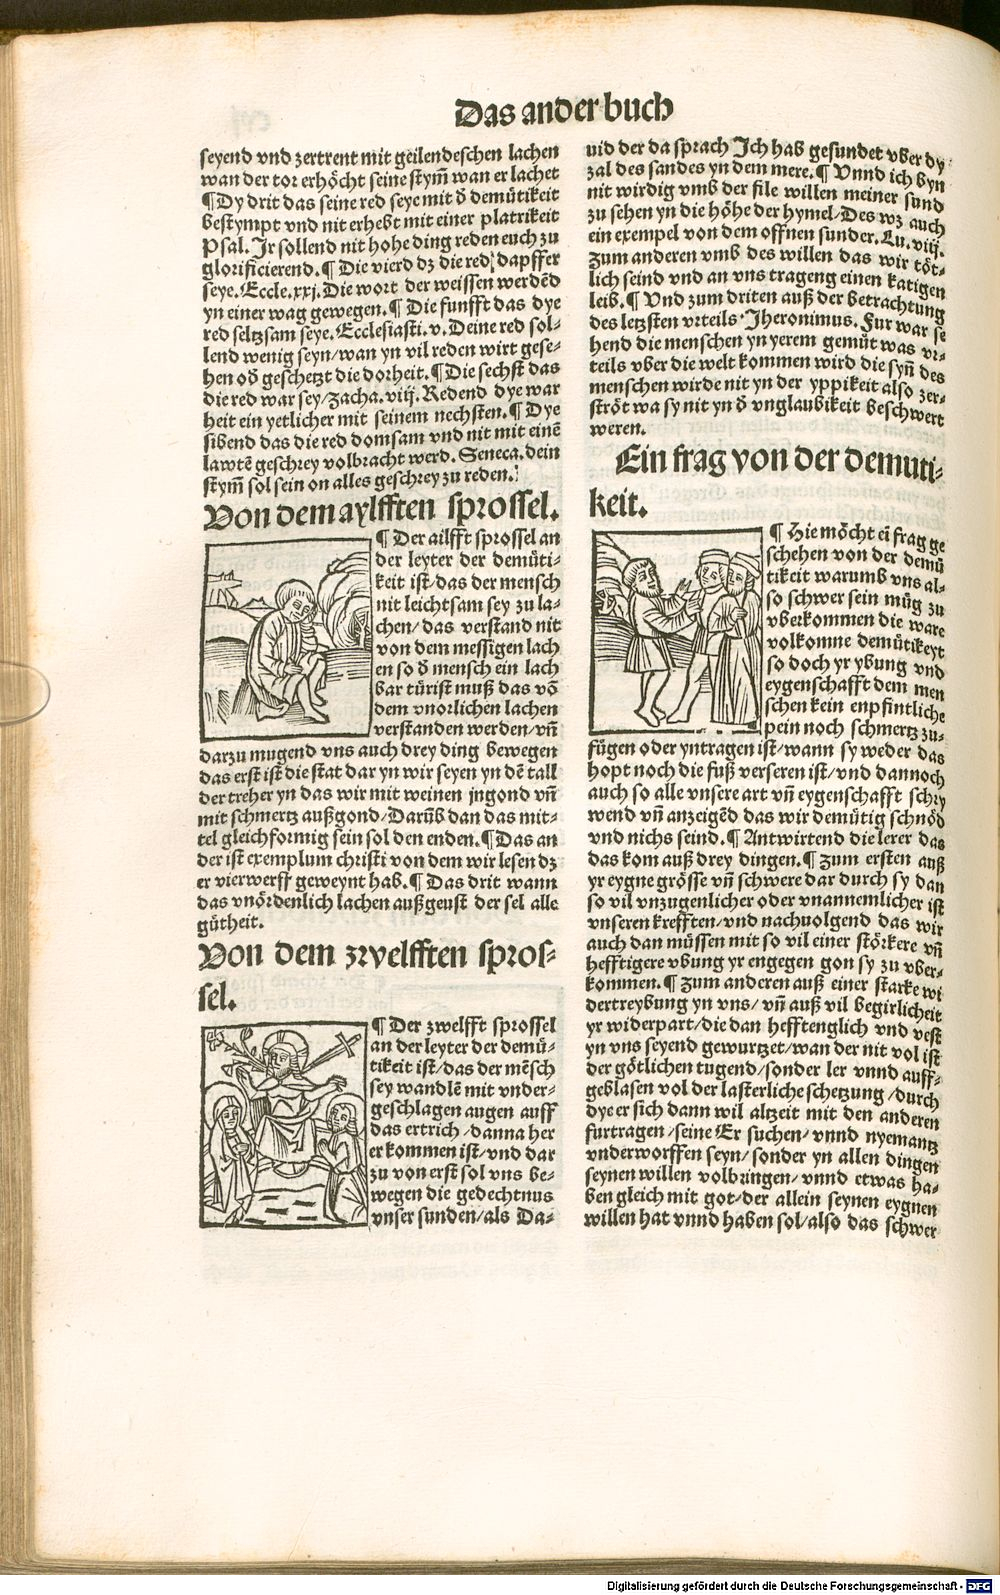 Das ander buch
seyend vnd zertrent mit geilendeschen lachen
wan der tor erhöcht seine stym̄ wan er lachet
¶ Dy drit das seine red seye mit ð demütikeit
bestympt vnd nit erhebt mit einer platrikeit
Psal. Ir sollend nit hohe ding reden euch zu
glorificierend. ¶ Die vierd dz die red dapffer
seye. Eccle. xxj. Die wort der weissen werdēd
yn einer wag gewegen. ¶ Die funfft das dye
red seltzsam seye. Ecclesiasti. v. Deine red sol⸗
lend wenig seyn/wan yn vil reden wirt gese⸗
hen oð geschetzt die dorheit. ¶ Die sechst das
die red war sey/Zacha. viij. Redend dye war
heit ein yetlicher mit seinem nechsten. ¶ Dye
sibend das die red domsam vnd nit mit einē
lawtē geschrey volbracht werd. Seneca. dein
stym̄ sol sein on alles geschrey zu reden.
Von dem aylfften sprossel.
¶ Der ailfft sprossel an
der leyter der demüti⸗
keit ist/das der mensch
nit leichtsam sey zu la⸗
chen/das verstand nit
von dem messigen lach
en so ð mensch ein lach
bar türist muß das vō
dem vnorlichen lachen
verstanden werden/vn̄
darzu mugend vns auch drey ding bewegen
das erst ist die stat dar yn wir seyen yn dē tall
der treher yn das wir mit weinen jngond vn̄
mit schmertz außgond/Darūb dan das mit⸗
tel gleichformig sein sol den enden. ¶ Das an
der ist exemplum christi von dem wir lesen dz
er vierwerff geweynt hab. ¶ Das drit wann
das vnördenlich lachen außgeust der sel alle
gütheit.
Von dem zwelfften spros⸗
sel.
¶ Der zwelfft sprossel
an der leyter der demü⸗
tikeit ist/das der mēsch
sey wandlē mit vnder⸗
geschlagen augen auff
das ertrich/danna her
er kommen ist/vnd dar
zu von erst sol vns be⸗
wegen die gedechtnus
vnser sunden/als Da⸗
uid der da sprach Ich hab gesundet vber dy
zal des sandes yn dem mere. ¶ Vnnd ich byn
nit wirdig vmb der file willen meiner sund
zu sehen yn die höhe der hymel/Des wz auch
ein exempel von dem offnen sunder. Lu. viij.
Zum anderen vmb des willen das wir töt⸗
lich seind vnd an vns trageng einen katigen
leib. ¶ Vnd zum driten auß der betrachtung
des letzsten vrteils. Jheronimus. Fur war se
hend die menschen yn yerem gemüt was vr⸗
teils vber die welt kommen wird die syn̄ des
menschen wirde nit yn der yppikeit also zer⸗
ströt wa sy nit yn ð vnglaubikeit beschwert
weren.
Ein frag von der demuti⸗
keit.
¶ Hie möcht eī frag ge
schehen von der demü
tikeit warumb vns al⸗
so schwer sein müg zu
vberkommen die ware
volkomne demütikeyt
so doch yr ybung vnd
eygenschafft dem men
schen kein enpfintliche
pein noch schmertz zu⸗
fügen oder yntragen ist/wann sy weder das
hopt noch die fuß verseren ist/vnd dannoch
auch so alle vnsere art vn̄ eygenschafft schry
wend vn̄ anzeigēd das wir demütig schnöd
vnd nichs seind. ¶ Antwirtend die lerer das
das kom auß drey dingen. ¶ Zum ersten auß
yr eygne grösse vn̄ schwere dar durch sy dan
so vil vnzugenlicher oder vnannemlicher ist
vnseren krefften/vnd nachuolgend das wir
auch dan müssen mit so vil einer störkere vn̄
hefftigere vbung yr engegen gon sy zu vber⸗
kommen. ¶ Zum anderen auß einer starke wi
dertreybung yn vns/vn̄ auß vil begirlicheit
yr widerpart/die dan hefftenglich vnd vest
yn vns seyend gewurtzet/wan der nit vol ist
der götlichen tugend/sonder ler vnnd auff⸗
geblasen vol der lasterliche schetzung/durch
dye er sich dann wil altzeit mit den anderen
furtragen/seine Er suchen/vnnd nyemantz
vnderworffen seyn/sonder yn allen dingen
seynen willen volbringen/vnnd etwas ha⸗
ben gleich mit got/der allein seynen eygnen
willen hat vnnd haben sol/also das schwer
Digitalisierung gefördert durch die Deutsche Forschungsgemeinschaft - DFG